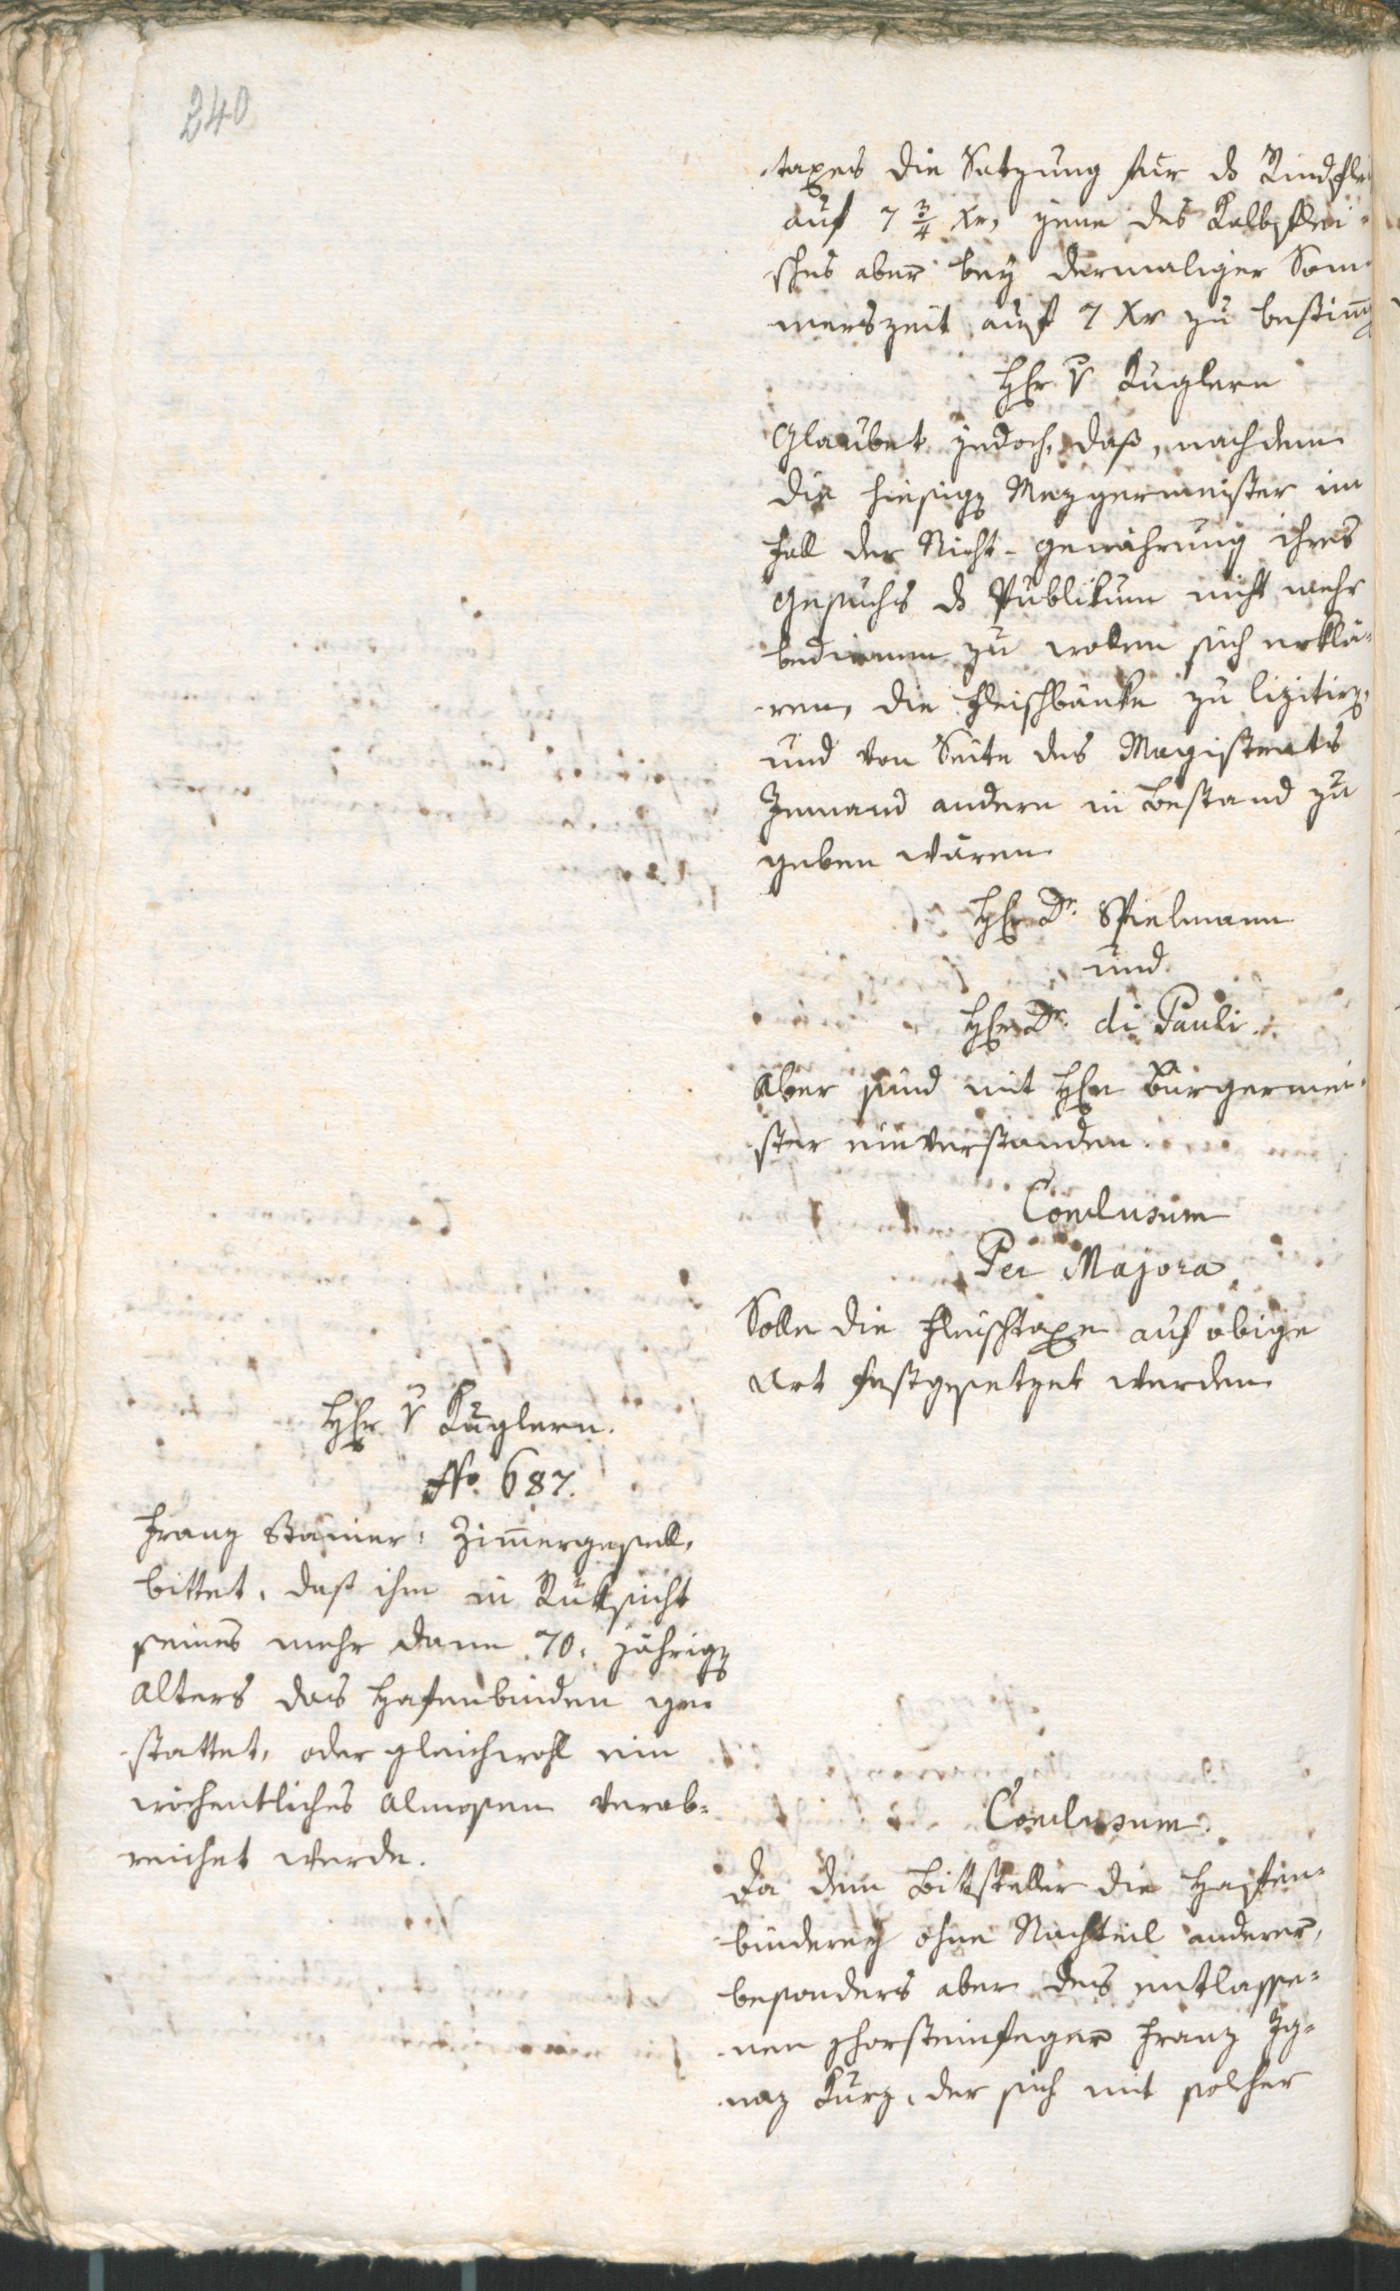 240
taxes die Satzung für ds Rindflei
auf 7 3/4 Xr, jene des Kalbflei-
sches aber bey dermaliger Som-
merszeit auf 7 Xr zu bestimmen
Hr v Kuglern
Glaubet jedoch, daß, nachdem
die hiesigen Mezgermeister im
Fall der Nicht-gewährung ihres
Gesuchs ds Publikum nicht mehr
bedienen zu wollen sich erklä-
ren, die Fleischbänke zu lizitiren,
und von Seite des Magistrats
Jemand andern in Bestand zu
geben wären
Hr Dr. Spielmann
und
Hr Dr. di Pauli.
Aber sind mit Hrn Bürgermei-
ster einverstanden.
Conclusum
Per Majora
Solle die Fleischtaxe auf obige
Art festgesetzet werden
Hr v Kuglern.
No. 687.
Franz Stainer, Zimergesell,
bittet, daß ihm in Rüksicht
seines mehr dann 70. jährigen
Alters das Hafenbinden ge-
stattet, oder gleichwohl ein
wöchentliches Almosen verab-
reichet werde.
Conclusum.
Da dem Bittsteller die Hafen-
binderey ohne Nachteil anderer,
besonders aber des entlasse-
nen Chorsteinfeger Franz Ig-
naz Kurz, der sich mit solcher